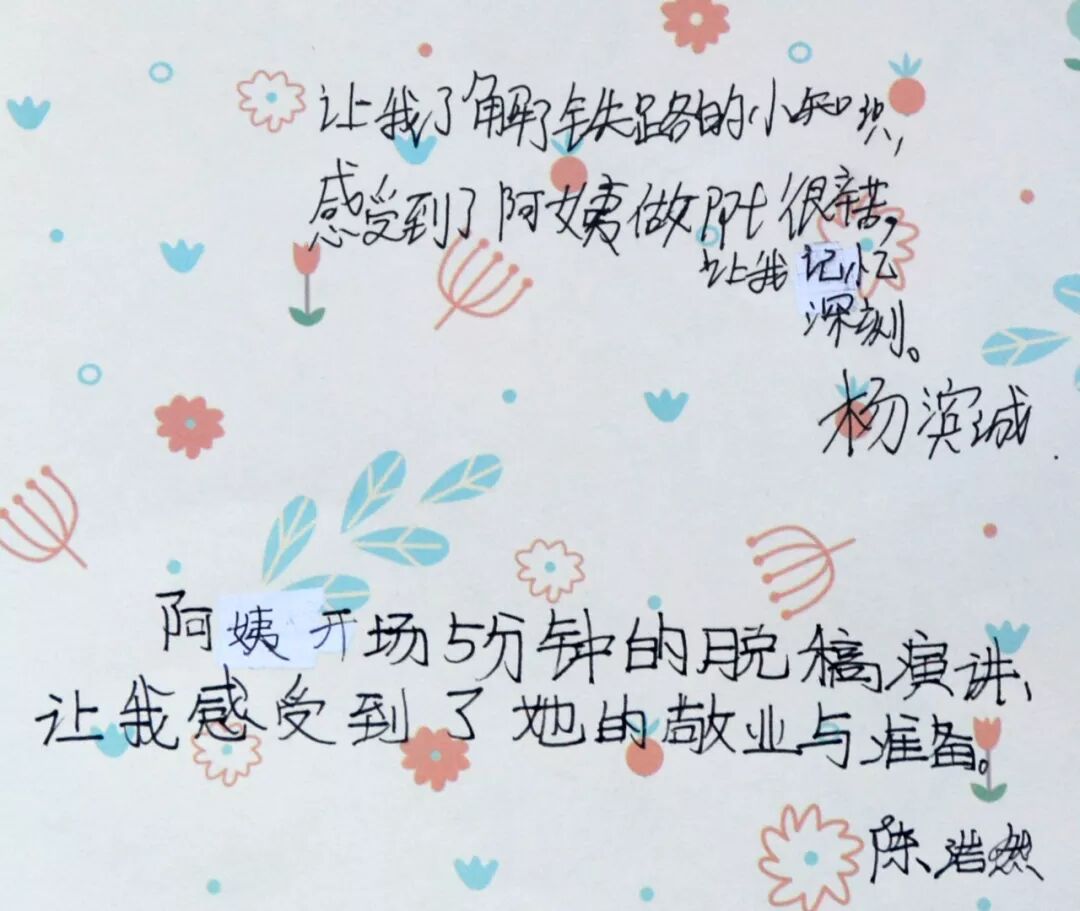 让我了解了铁路的小知识,
感受到了阿姨做PPt很辛苦,
让我记忆
深刻。
杨滨城
阿姨开场5分钟的脱稿演讲、
让我感受到了她的敬业与准备。
陈浩然